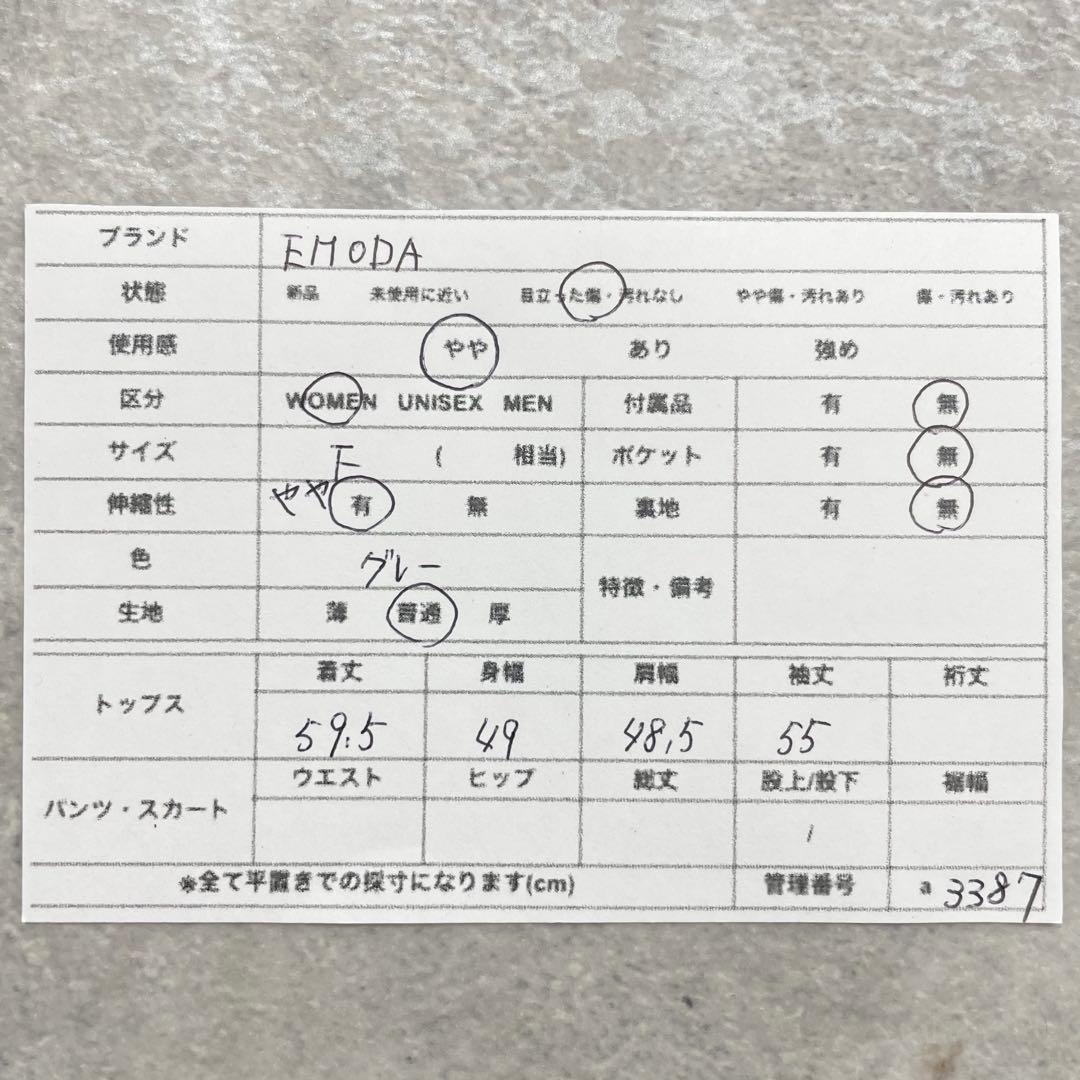 ブランド EMODA
状態 新品 未使用に近い 目立った傷・汚れなし やや傷・汚れあり 傷・汚れあり
使用感 やや あり 強め
区分 WOMEN UNISEX MEN 付属品 有 無
サイズ F ( 相当) ポケット 有 無
伸縮性 やや 有 無 裏地 有 無
色 グレー 特徴・備考
生地 薄 普通 厚
トップス 着丈 身幅 肩幅 袖丈 裄丈
59.5 49 48.5 55
パンツ・スカート ウエスト ヒップ 総丈 股上/股下 裾幅
/
※全て平置きでの採寸になります(cm) 管理番号 a 3387